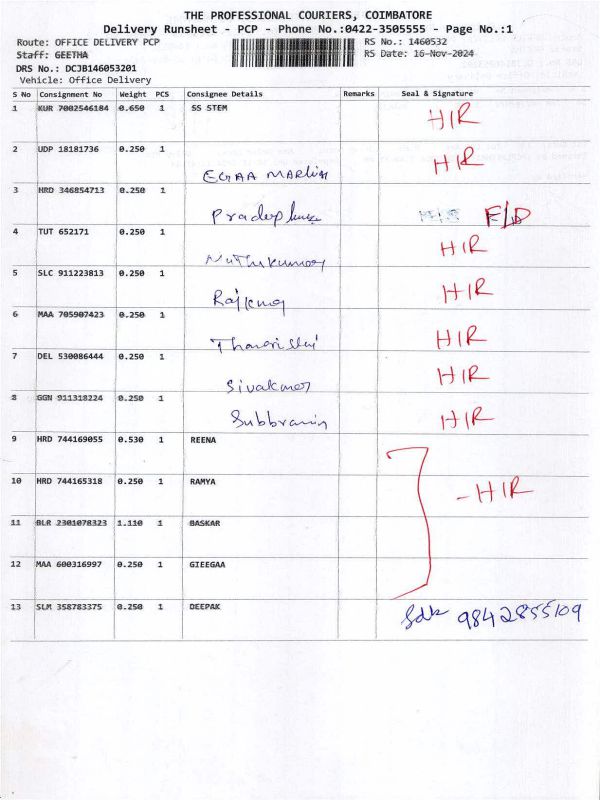 THE PROFESSIONAL COURIERS, COIMBATORE
Delivery Runsheet - PCP - Phone No.:0422-3505555 - Page No.:1
Route: OFFICE DELIVERY PCP RS No.: 1460532
Staff: GEETHA RS Date: 16-Nov-2024
DRS No.: DCJB146053201
Vehicle: Office Delivery
S No Consignment No Weight PCS Consignee Details Remarks Seal & Signature
1 KUR 7002546184 0.650 1 SS STEM HIR
2 UDP 18181736 0.250 1 HIR
EGAA
3 HRD 346854713 0.250 1
Pradeep F/D
4 TUT 652171 0.250 1 HIR
5 SLC 911223813 0.250 1 HIR
6 MAA 705907423 0.250 1 HIR
7 DEL 530086444 0.250 1 HIR
8 GGN 911318224 0.250 1 HIR
9 HRD 744169055 0.530 1 REENA
10 HRD 744165318 0.250 1 RAMYA - HIR
11 BLR 2301078323 1.110 1 BASKAR
12 MAA 600316997 0.250 1 GIEEGAA
13 SLM 358783375 0.250 1 DEEPAK 9842855109